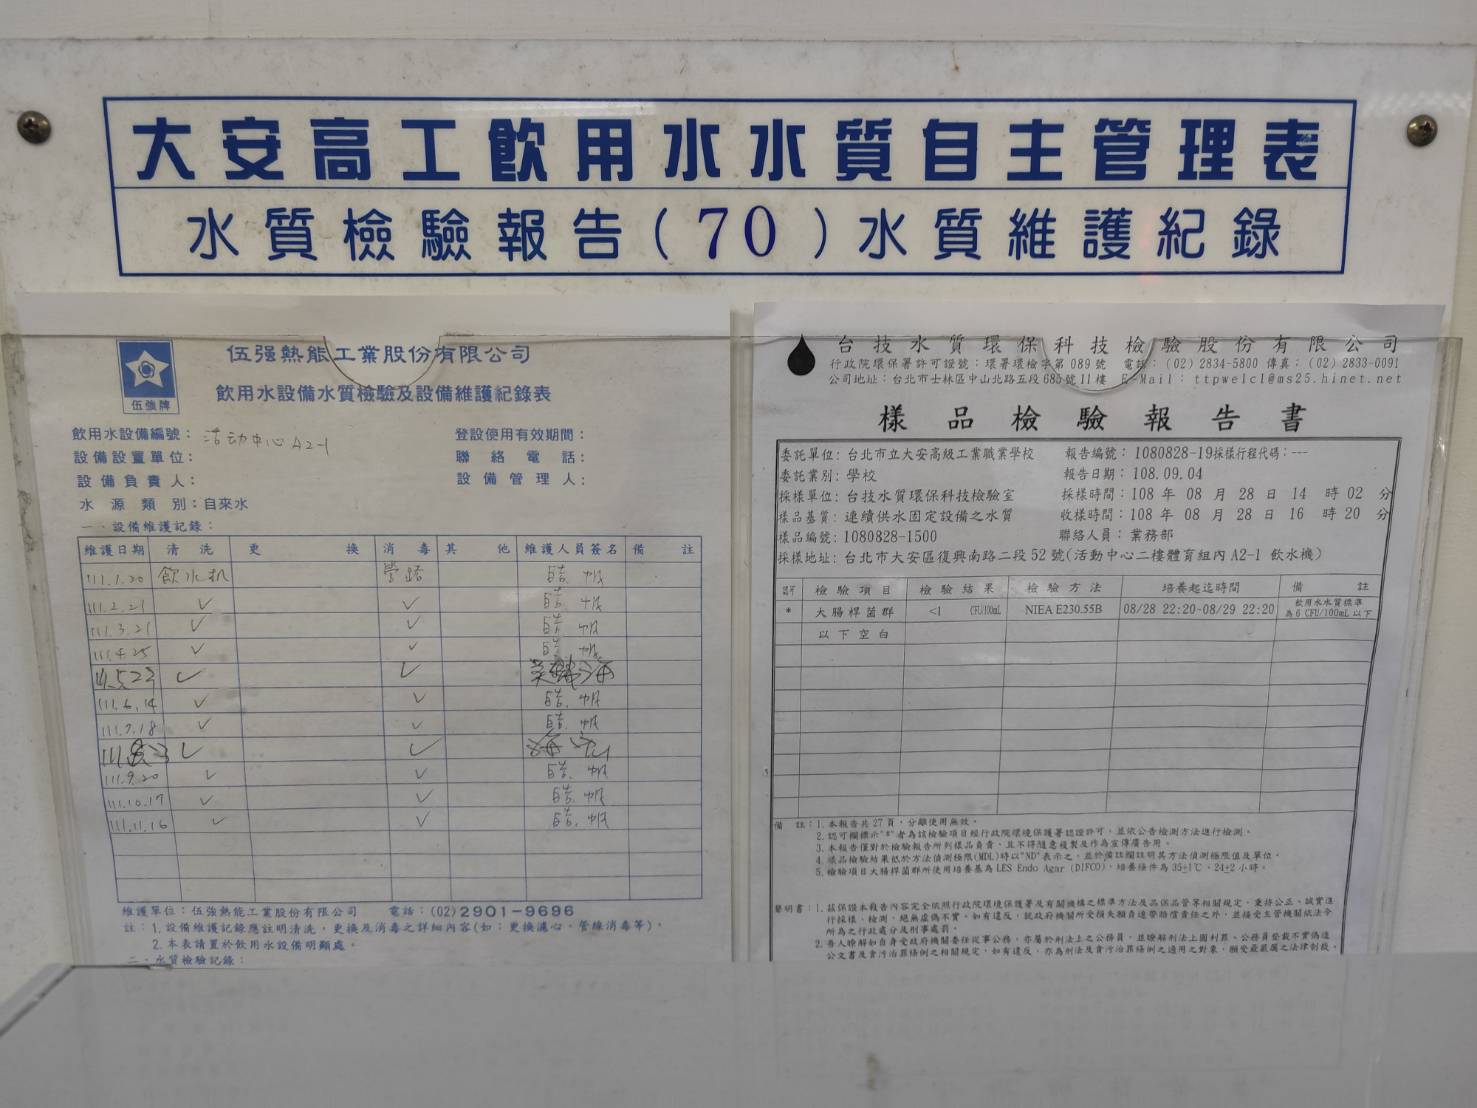 大安高工飲用水水質自主管理表
水質檢驗報告(70)水質維護紀錄
伍强熱能工業股份有限公司
飲用水設備水質檢驗及設備維護紀錄表
伍強牌
飲用水設備編號：活动中心 A2-1
登設使用有效期間：
設備設置單位：
聯絡電話：
設備負責人：
設備管理人：
水源類別：自來水
一、設備維護記錄：
維護日期 清洗 更換 消毒 其他 維護人員簽名 備註
111.1.20 飲水机 管路
111.2.21 ✓ ✓
111.3.21 ✓ ✓
111.4.25 ✓ ✓
111.5.23 ✓ ✓
111.6.14 ✓ ✓
111.7.18 ✓ ✓
✓ ✓
111.9.20 ✓ ✓
111.10.17 ✓ ✓
111.11.16 ✓ ✓
維護單位：伍強熱能工業股份有限公司 電話：(02)2901-9696
註：1.設備維護記錄應註明清洗，更換及消毒之詳細內容(如：更換濾心、管線消毒等)。
2.本表請置於飲用水設備明顯處。
二、水質檢驗記錄：
台技水質環保科技檢驗股份有限公司
行政院環保署許可證號：環署環檢字第089號 電話：(02)2834-5800 傳真：(02)2833-0091
公司地址：台北市士林區中山北路五段685號11樓 E-Mail：ttpwelcl@ms25.hinet.net
樣品檢驗報告書
委託單位：台北市立大安高級工業職業學校 報告編號：1080828-19採樣行程代碼：---
委託業別：學校 報告日期：108.09.04
採樣單位：台技水質環保科技檢驗室 採樣時間：108 年 08 月 28 日 14 時 02 分
樣品基質：連續供水固定設備之水質 收樣時間：108 年 08 月 28 日 16 時 20 分
樣品編號：1080828-1500 聯絡人員：業務部
採樣地址：台北市大安區復興南路二段52號(活動中心二樓體育組內 A2-1 飲水機)
認可 檢驗項目 檢驗結果 檢驗方法 培養起迄時間 備註
* 大腸桿菌群 <1 CFU/100mL NIEA E230.55B 08/28 22:20~08/29 22:20 飲用水水質標準為6 CFU/100mL以下
以下空白
備註：1.本報告共27頁，分離使用無效。
2.認可欄標示"*"者為該檢驗項目經行政院環境保護署認證許可，並依公告檢測方法進行檢測。
3.本報告僅對於檢驗報告所列樣品負責，且不得隨意複製及作為宣傳廣告用。
4.樣品檢驗結果低於方法偵測極限(MDL)時以"ND"表示之，並於備註欄註明其方法偵測極限值及單位。
5.檢驗項目大腸桿菌群所使用培養基為LES Endo Agar (DIFCO)，培養條件為35±1℃，24±2小時。
聲明書：1.茲保證本報告內容完全依照行政院環境保護署及有關機構之標準方法及品保品管等相關規定，秉持公正、誠實進
行採樣、檢測，絕無虛偽不實。如有違反，就政府機關所受損失願負連帶賠償責任之外，並接受主管機關依法令
所為之行政處分及刑事處罰。
2.吾人瞭解如自身受政府機關委任從事公務，亦屬於刑法上之公務員，並瞭解刑法上圖利罪、公務員登載不實偽造
公文書及貪污治罪條例之相關規定，如有違反，亦為刑法及貪污治罪條例之適用之對象，願受最嚴厲之法律制裁。